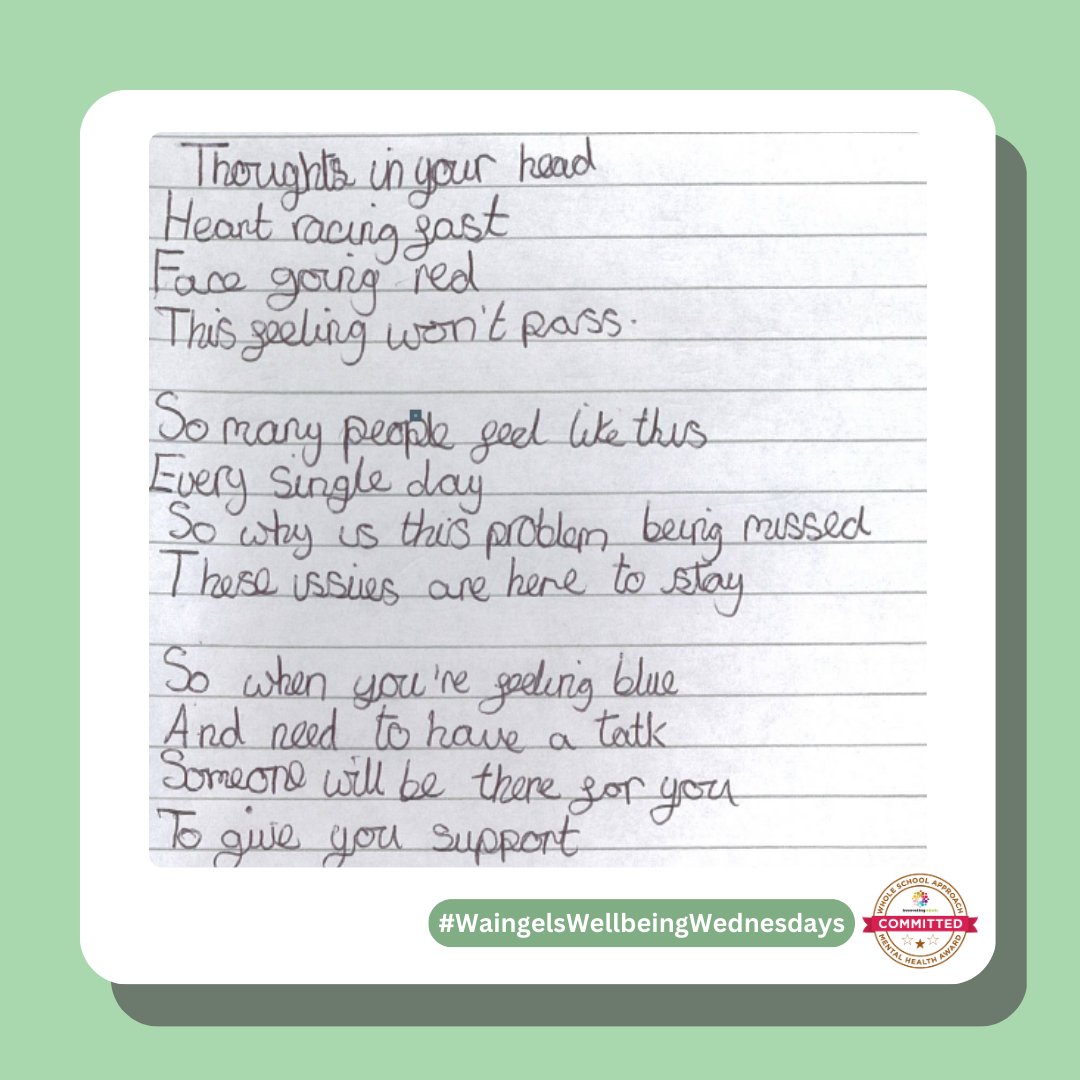 Thoughts in your head
Heart racing fast
Face going red
This feeling won't pass.
So many people feel like this
Every single day
So why is this problem being missed
These issues are here to stay
So when you're feeling blue
And need to have a talk
Someone will be there for you
To give you support
#WaingelsWellbeingWednesdays
WHOLE SCHOOL APPROACH
COMMITTED
MENTAL HEALTH AWARD